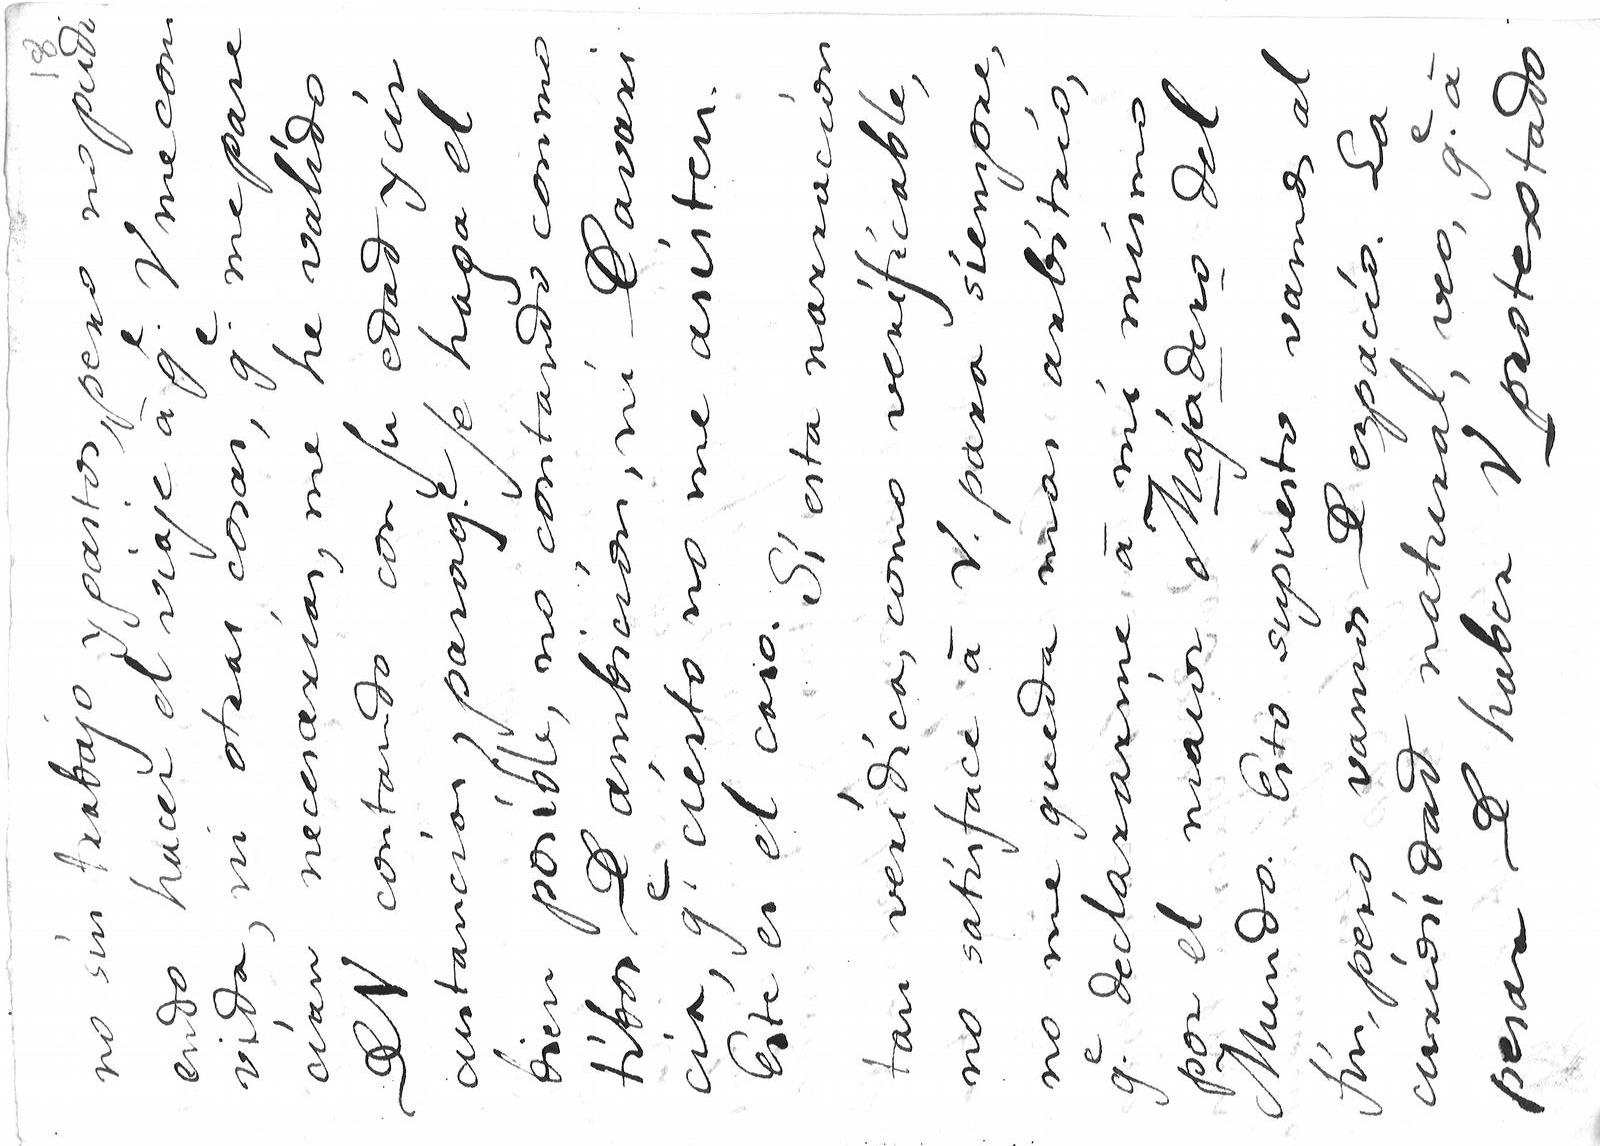 18
no sin trabajo y pastos, pero no pudi
endo hacer el viaje à q.e V me con
vida, ni otras cosas, q.e me pare
cian necesarias, me he valido
D N contando con su edad y cir
custancias, para q.e se haga el
bien posible, no contando como
tibos D ambicion, ni D avari
cia, q.e cierto no me asisten.
Este es el caso. Si esta narracion
tan veridica, como verificable,
no satisface à V. para siempre,
no me queda mas arbitrio,
q.e declararme à mi mismo
por el maior Majadero del
Mundo. Esto supuesto vamos al
fin, pero vamos D espacio. La
curiosidad natural, veo, q.e à
pesar D haber V protextado